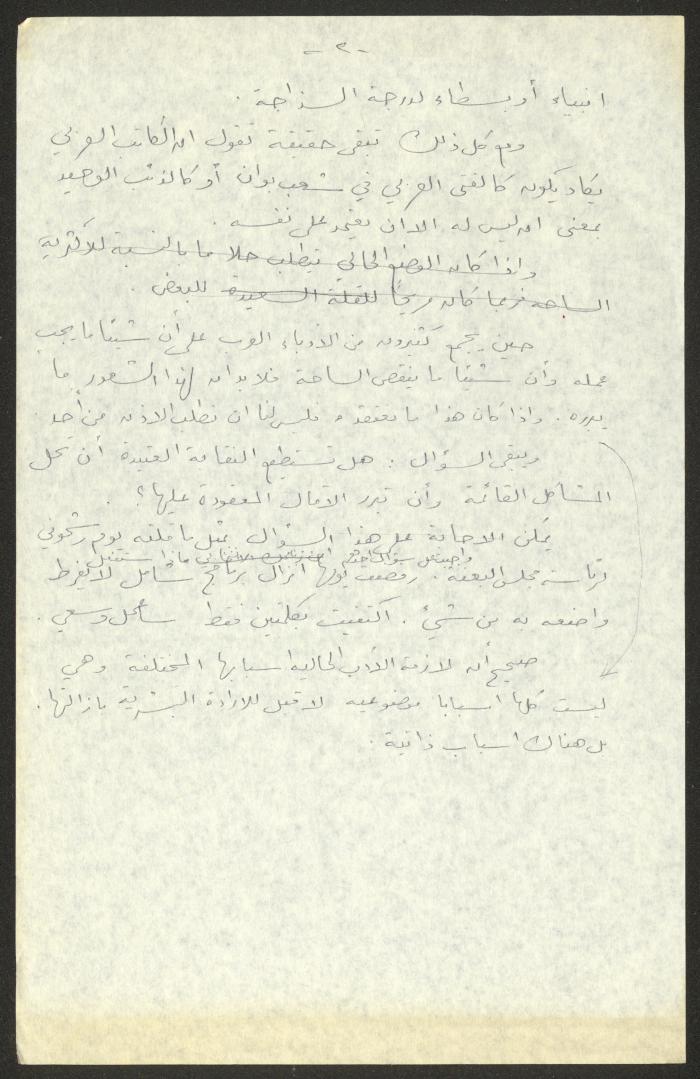 - ٢ -
انبياء أو بسطاء لدرجة السذاجة .
ومع كل ذلك تبقى حقيقة تقول ان الكاتب العربي
يكاد يكون كالفتى العربي في شعب بوان أو كالذئب الوحيد
بمعنى انه ليس له الا ان يعتمد على نفسه .
واذا كان الوضع الحالي يتطلب حلا ما بالنسبة للاكثرية
الساحقة فربما كان مريحاً للقلة السعيدة للبعض .
حين يجمع كثيرون من الادباء العرب على أن شيئا ما يجب
عمله وأن شيئا ما ينقص الساحة فلا بد ان لهذا الشعور ما
يبرره . واذا كان هذا ما نعتقد فليس لنا ان نطلب الاذن من أحد
ويبقى السؤال : هل تستطيع النقابة العتيدة أن تحل
المشاكل القائمة وأن تبرر الآمال المعقودة عليها ؟ .
يمكن الاجابة على هذا السؤال بمثل ما قلته يوم رشحوني
واجبت على سؤال احدهم ماذا ستفعل
لرئاسة مجلس البعثة . رفضت يومها انزال برنامج شامل لا يفرط
واضعه به من شيء . اكتفيت بكلمتين فقط سأعمل وسعي .
صحيح أن لازمة الأدب الحالية اسبابها المختلفة وهي
ليست كلها اسبابا موضوعيه لا قبل للارادة البشرية بازالتها .
بل هناك اسباب ذاتية .